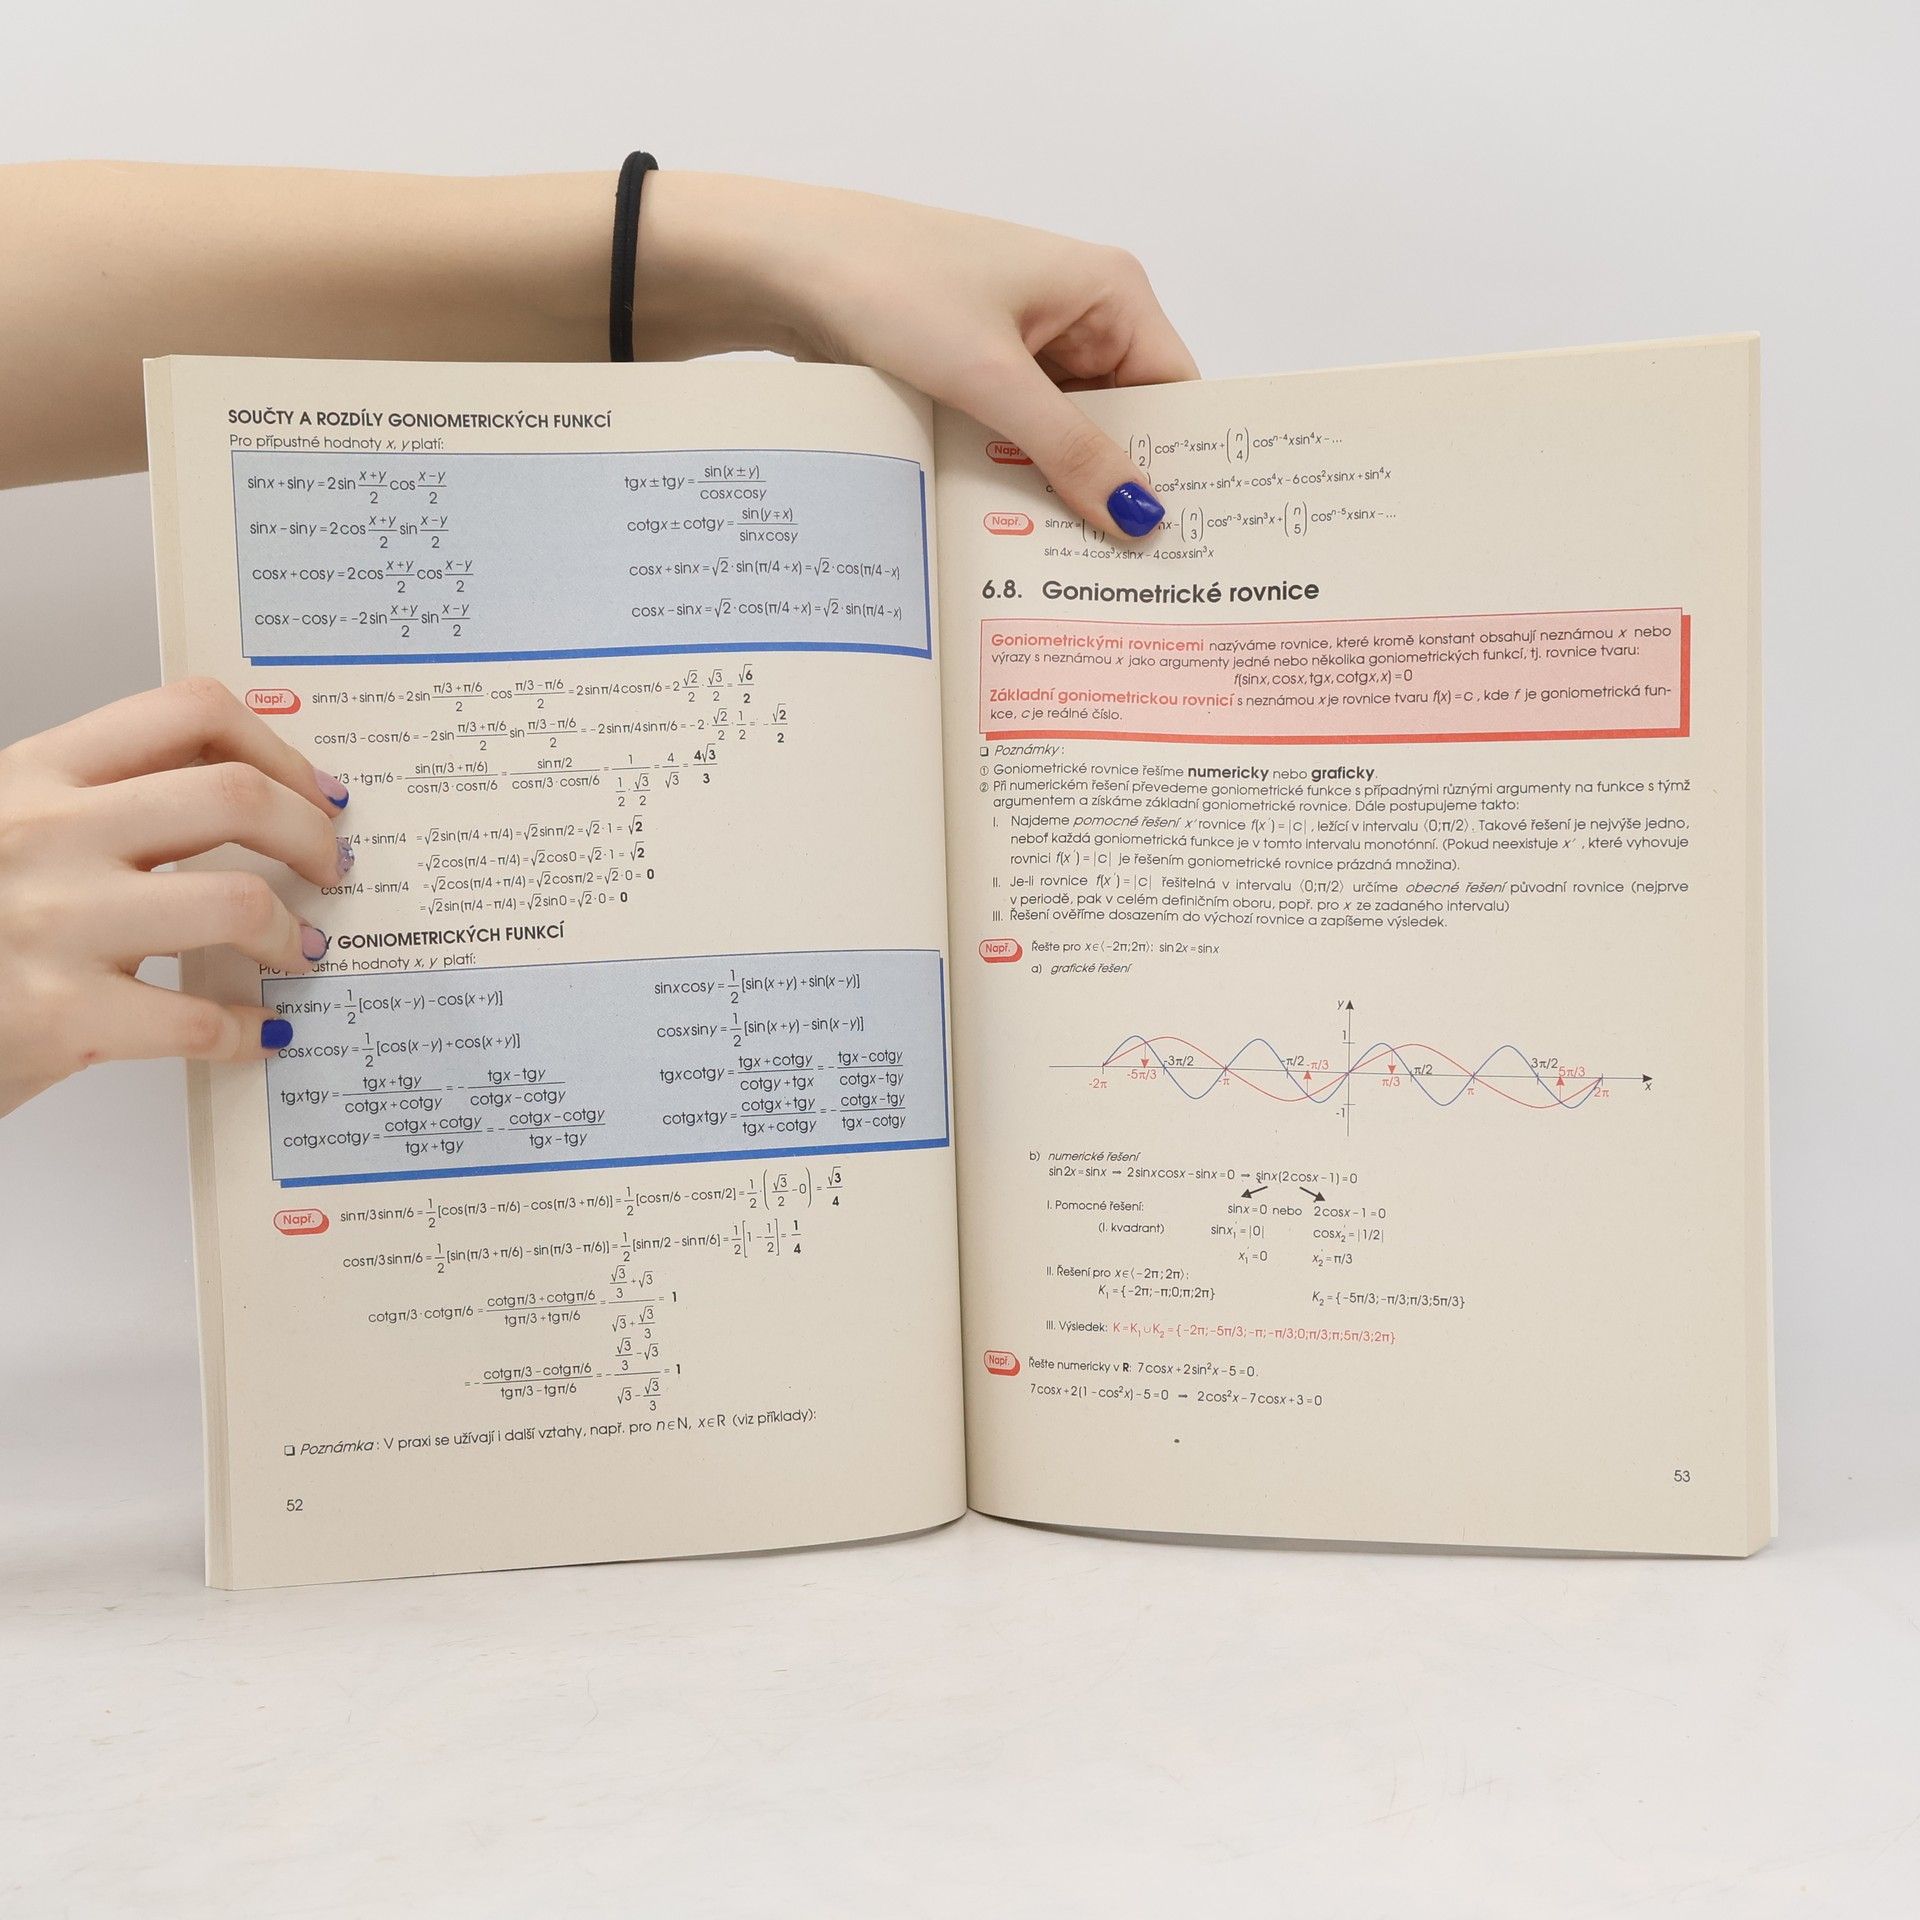 SOUČTY A ROZDÍLY GONIOMETRICKÝCH FUNKCÍ
Pro přípustné hodnoty x, y platí:
sinx+siny=2sin x+y/2 cos x−y/2
sinx−siny=2cos x+y/2 sin x−y/2
cosx+cosy=2cos x+y/2 cos x−y/2
cosx−cosy=−2sin x+y/2 sin x−y/2
tgx±tgy= sin(x±y)/cosxcosy
cotgx±cotgy= sin(y∓x)/sinxcosy
cosx+sinx=√2·sin(π/4+x)=√2·cos(π/4−x)
cosx−sinx=√2·cos(π/4+x)=√2·sin(π/4−x)
Např. sinπ/3+sinπ/6=2sin π/3+π/6/2 ·cos π/3−π/6/2 =2sinπ/4cosπ/6=2 √2/2 · √3/2 = √6/2
cosπ/3−cosπ/6=−2sin π/3+π/6/2 sin π/3−π/6/2 =−2sinπ/4sinπ/6=−2· √2/2 · 1/2 =− √2/2
/3+tgπ/6= sin(π/3+π/6)/cosπ/3·cosπ/6 = sinπ/2/cosπ/3·cosπ/6 = 1/(1/2 · √3/2) = 4/√3 = 4√3/3
π/4+sinπ/4 =√2sin(π/4+π/4)=√2sinπ/2=√2·1=√2
=√2cos(π/4−π/4)=√2cos0=√2·1=√2
cosπ/4−sinπ/4 =√2cos(π/4+π/4)=√2cosπ/2=√2·0=0
=√2sin(π/4−π/4)=√2sin0=√2·0=0
Y GONIOMETRICKÝCH FUNKCÍ
hodnoty x, y platí:
sinxsiny= 1/2 [cos(x−y)−cos(x+y)]
cosxcosy= 1/2 [cos(x−y)+cos(x+y)]
tgxtgy= tgx+tgy/cotgx+cotgy =− tgx−tgy/cotgx−cotgy
cotgxcotgy= cotgx+cotgy/tgx+tgy =− cotgx−cotgy/tgx−tgy
sinxcosy= 1/2 [sin(x+y)+sin(x−y)]
cosxsiny= 1/2 [sin(x+y)−sin(x−y)]
tgxcotgy= tgx+cotgy/cotgy+tgx =− tgx−cotgy/cotgx−tgy
cotgxtgy= cotgx+tgy/tgx+cotgy =− cotgx−tgy/tgx−cotgy
Např. sinπ/3sinπ/6= 1/2 [cos(π/3−π/6)−cos(π/3+π/6)]= 1/2 [cosπ/6−cosπ/2]= 1/2 ·( √3/2 −0)= √3/4
cosπ/3sinπ/6= 1/2 [sin(π/3+π/6)−sin(π/3−π/6)]= 1/2 [sinπ/2−sinπ/6]= 1/2 [1− 1/2 ]= 1/4
cotgπ/3·cotgπ/6= cotgπ/3+cotgπ/6/tgπ/3+tgπ/6 = (√3/3 +√3)/(√3+ √3/3) =1
=− cotgπ/3−cotgπ/6/tgπ/3−tgπ/6 =− (√3/3 −√3)/(√3− √3/3) =1
❏ Poznámka: V praxi se užívají i další vztahy, např. pro n∈N, x∈R (viz příklady):
52
Např. −(n 2)cosⁿ⁻²xsinx+(n 4)cosⁿ⁻⁴xsin⁴x−...
cos²xsinx+sin⁴x=cos⁴x−6cos²xsinx+sin⁴x
Např. sinnx=( 1) nx−(n 3)cosⁿ⁻³xsin³x+(n 5)cosⁿ⁻⁵xsinx−...
sin4x=4cos³xsinx−4cosxsin³x
6.8. Goniometrické rovnice
Goniometrickými rovnicemi nazýváme rovnice, které kromě konstant obsahují neznámou x nebo
výrazy s neznámou x jako argumenty jedné nebo několika goniometrických funkcí, tj. rovnice tvaru:
f(sinx,cosx,tgx,cotgx,x)=0
Základní goniometrickou rovnicí s neznámou x je rovnice tvaru f(x)=c , kde f je goniometrická fun-
kce, c je reálné číslo.
❏ Poznámky:
① Goniometrické rovnice řešíme numericky nebo graficky.
② Při numerickém řešení převedeme goniometrické funkce s případnými různými argumenty na funkce s týmž
argumentem a získáme základní goniometrické rovnice. Dále postupujeme takto:
I. Najdeme pomocné řešení x′ rovnice f(x′)=|c| , ležící v intervalu ⟨0;π/2⟩. Takové řešení je nejvýše jedno,
neboť každá goniometrická funkce je v tomto intervalu monotónní. (Pokud neexistuje x′ , které vyhovuje
rovnici f(x′)=|c| je řešením goniometrické rovnice prázdná množina).
II. Je-li rovnice f(x′)=|c| řešitelná v intervalu ⟨0;π/2⟩ určíme obecné řešení původní rovnice (nejprve
v periodě, pak v celém definičním oboru, popř. pro x ze zadaného intervalu)
III. Řešení ověříme dosazením do výchozí rovnice a zapíšeme výsledek.
Např. Řešte pro x∈⟨−2π;2π⟩: sin2x=sinx
a) grafické řešení
y
1
-2π -5π/3 -3π/2 -π -π/2 -π/3 π/3 π/2 π 3π/2 5π/3 2π x
-1
b) numerické řešení
sin2x=sinx ⇒ 2sinxcosx−sinx=0 ⇒ sinx(2cosx−1)=0
I. Pomocné řešení: sinx=0 nebo 2cosx−1=0
(I. kvadrant) sinx₁′=|0| cosx₂′=|1/2|
x₁′=0 x₂′=π/3
II. Řešení pro x∈⟨−2π;2π⟩:
K₁={−2π;−π;0;π;2π} K₂={−5π/3;−π/3;π/3;5π/3}
III. Výsledek: K=K₁∪K₂={−2π;−5π/3;−π;−π/3;0;π/3;π;5π/3;2π}
Např. Řešte numericky v R: 7cosx+2sin²x−5=0.
7cosx+2(1−cos²x)−5=0 ⇒ 2cos²x−7cosx+3=0
53